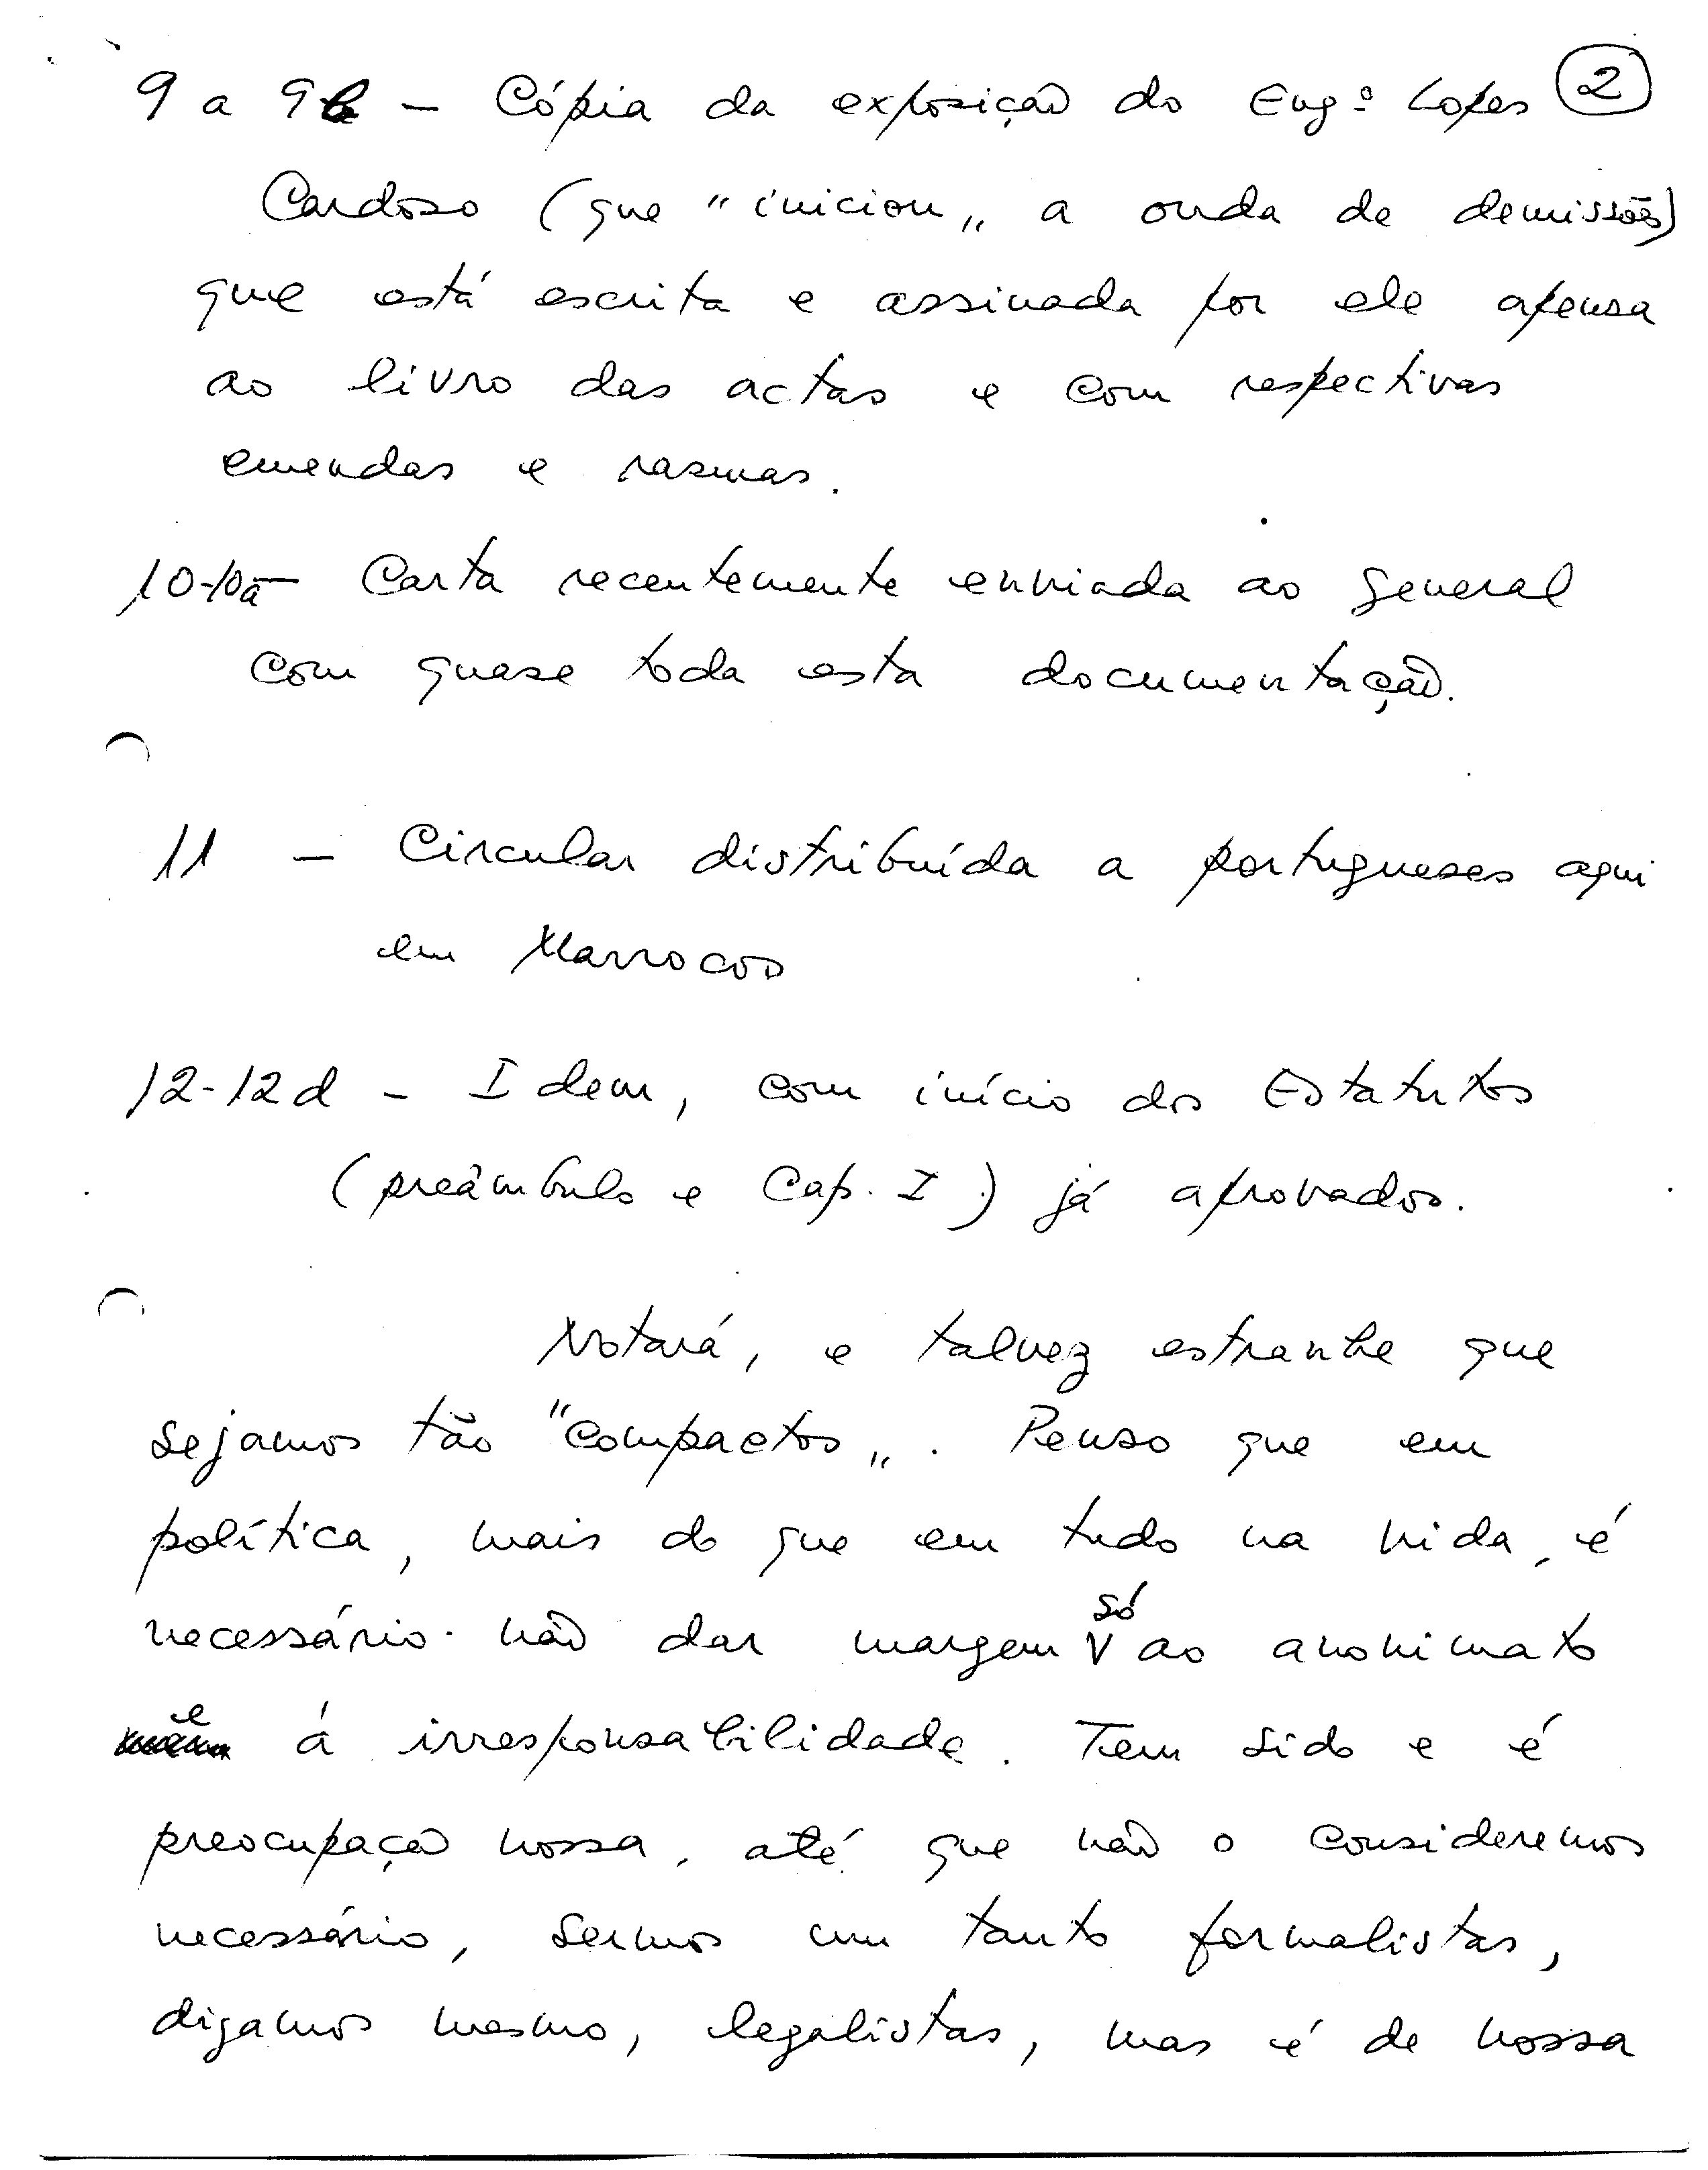 9 a 9b — Cópia da exposição do Engº Lopes 2
Cardoso (que "iniciou„ a onda de demissões)
que está escrita e assinada por ele apensa
ao livro das actas e com respectivas
emendas e rasuras.
10-10a — Carta recentemente enviada ao general
com quase toda esta documentação.
11 — Circular distribuída a portugueses aqui
em Marrocos
12-12d - Idem, com início dos Estatutos
(preâmbulo e Cap. I) já aprovados.
Notará, e talvez estranhe que
sejamos tão "compactos„. Penso que em
política, mais do que em tudo na vida, é
só
necessário não dar margem V ao anonimato
e á irresponsabilidade. Tem sido e é
preocupação nossa, até que não o consideremos
necessário, sermos um tanto formalistas,
digamos mesmo, legalistas, mas é de nossa